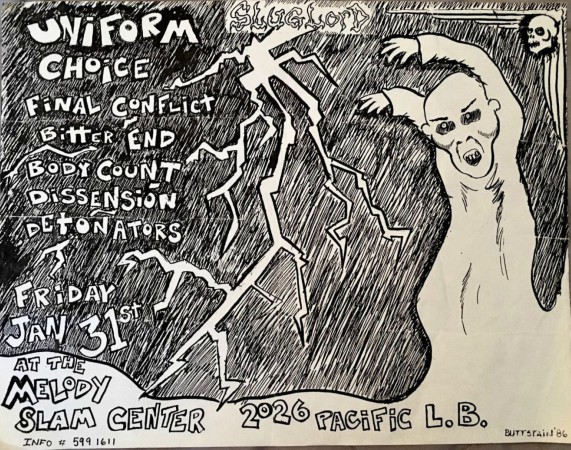 UNIFORM
CHOICE
SLUGLORD
FINAL CONFLICT
BITTER END
BODY COUNT
DISSENSION
DETONATORS
FRIDAY
JAN 31st
AT THE
MELODY
SLAM CENTER 2026 PACIFIC L.B.
INFO # 599 1611
BUTTSTAIN '86